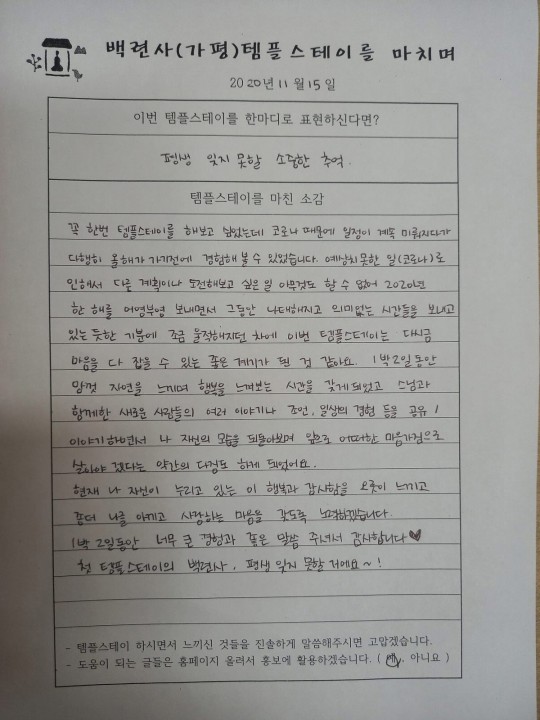 백련사(가평)템플스테이를 마치며
2020년 11월 15일
이번 템플스테이를 한마디로 표현하신다면?
평생 잊지 못할 소중한 추억.
템플스테이를 마친 소감
꼭 한번 템플스테이를 해보고 싶었는데 코로나 때문에 일정이 계속 미뤄지다가
다행히 올해가 가기전에 경험해 볼 수 있었습니다. 예상치못한 일(코로나)로
인해서 다른 계획이나 도전해보고 싶은 일 아무것도 할 수 없어 2020년
한 해를 어영부영 보내면서 그동안 나태해지고 의미없는 시간들을 보내고
있는 듯한 기분에 조금 울적해지던 차에 이번 템플스테이는 다시금
마음을 다 잡을 수 있는 좋은 계기가 된 것 같아요. 1박2일동안
맘껏 자연을 느끼며 행복을 느껴보는 시간을 갖게되었고 스님과
함께한 새로운 사람들의 여러 이야기나 조언, 일상의 경험 등을 공유/
이야기하면서 나 자신의 모습을 되돌아보며 앞으로 어떠한 마음가짐으로
살아야 겠다는 약간의 다짐도 하게 되었어요.
현재 나 자신이 누리고 있는 이 행복과 감사함을 오롯이 느끼고
좀더 나를 아끼고 사랑하는 마음을 갖도록 노력하겠습니다.
1박 2일동안 너무 큰 경험과 좋은 말씀 주셔서 감사합니다♥
첫 템플스테이의 백련사, 평생 잊지 못할 거에요~!
- 템플스테이 하시면서 느끼신 것들을 진솔하게 말씀해주시면 고맙겠습니다.
- 도움이 되는 글들은 홈페이지 올려서 홍보에 활용하겠습니다. ( 예, 아니요 )